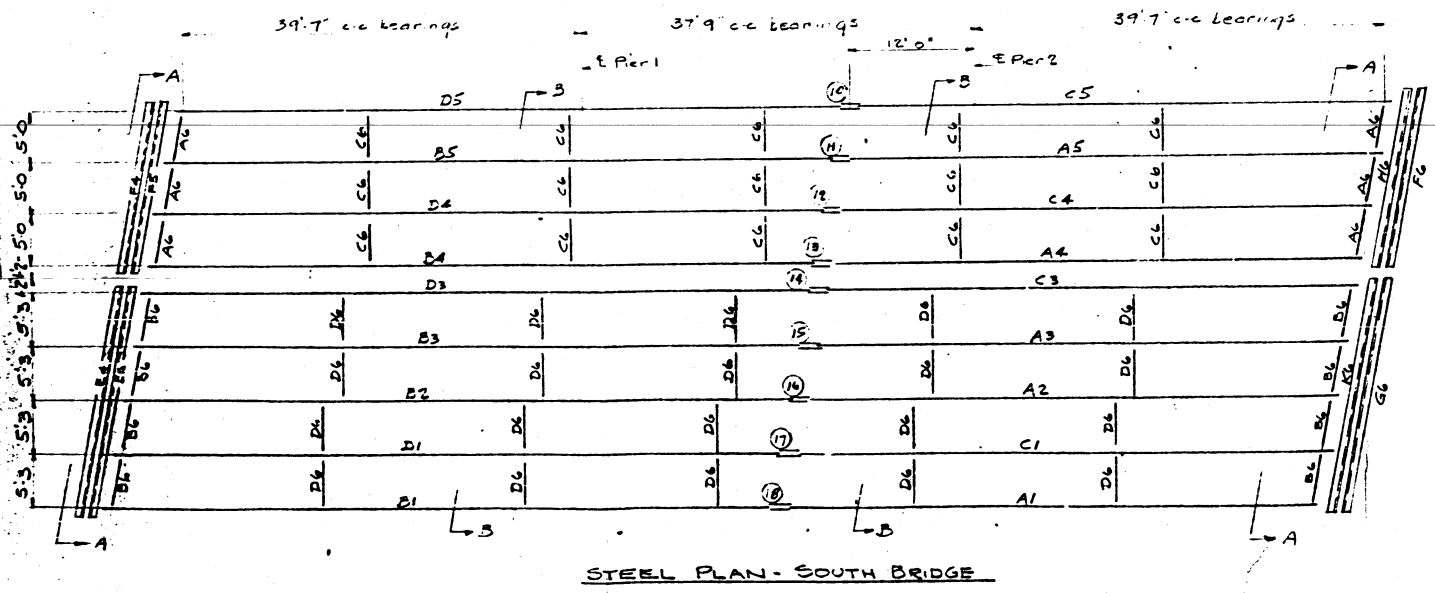 39'-7" c-c bearings 37'9" c-c bearings 39'-7" c-c bearings
12'0"
℄ Pier 1 ℄ Pier 2
A B B A
D5 C5
5'0 A6 C6 C6 C6 C6 C6 A6
B5 11 A5
F4 F5 H6 F6
5'0 A6 C6 C6 C6 C6 C6 A6
D4 12 C4
5'0 A6 C6 C6 C6 C6 C6 A6
B4 13 A4
D3 14 C3
5'3 B6 D6 D6 D6 D6 D6 B6
B3 15 A3
5'3 B6 D6 D6 D6 D6 D6 B6
E4 K6 G6
B2 16 A2
5'3 B6 D6 D6 D6 D6 D6 B6
D1 17 C1
5'3 B6 D6 D6 D6 D6 D6 B6
B1 18 A1
A B B A
STEEL PLAN - SOUTH BRIDGE